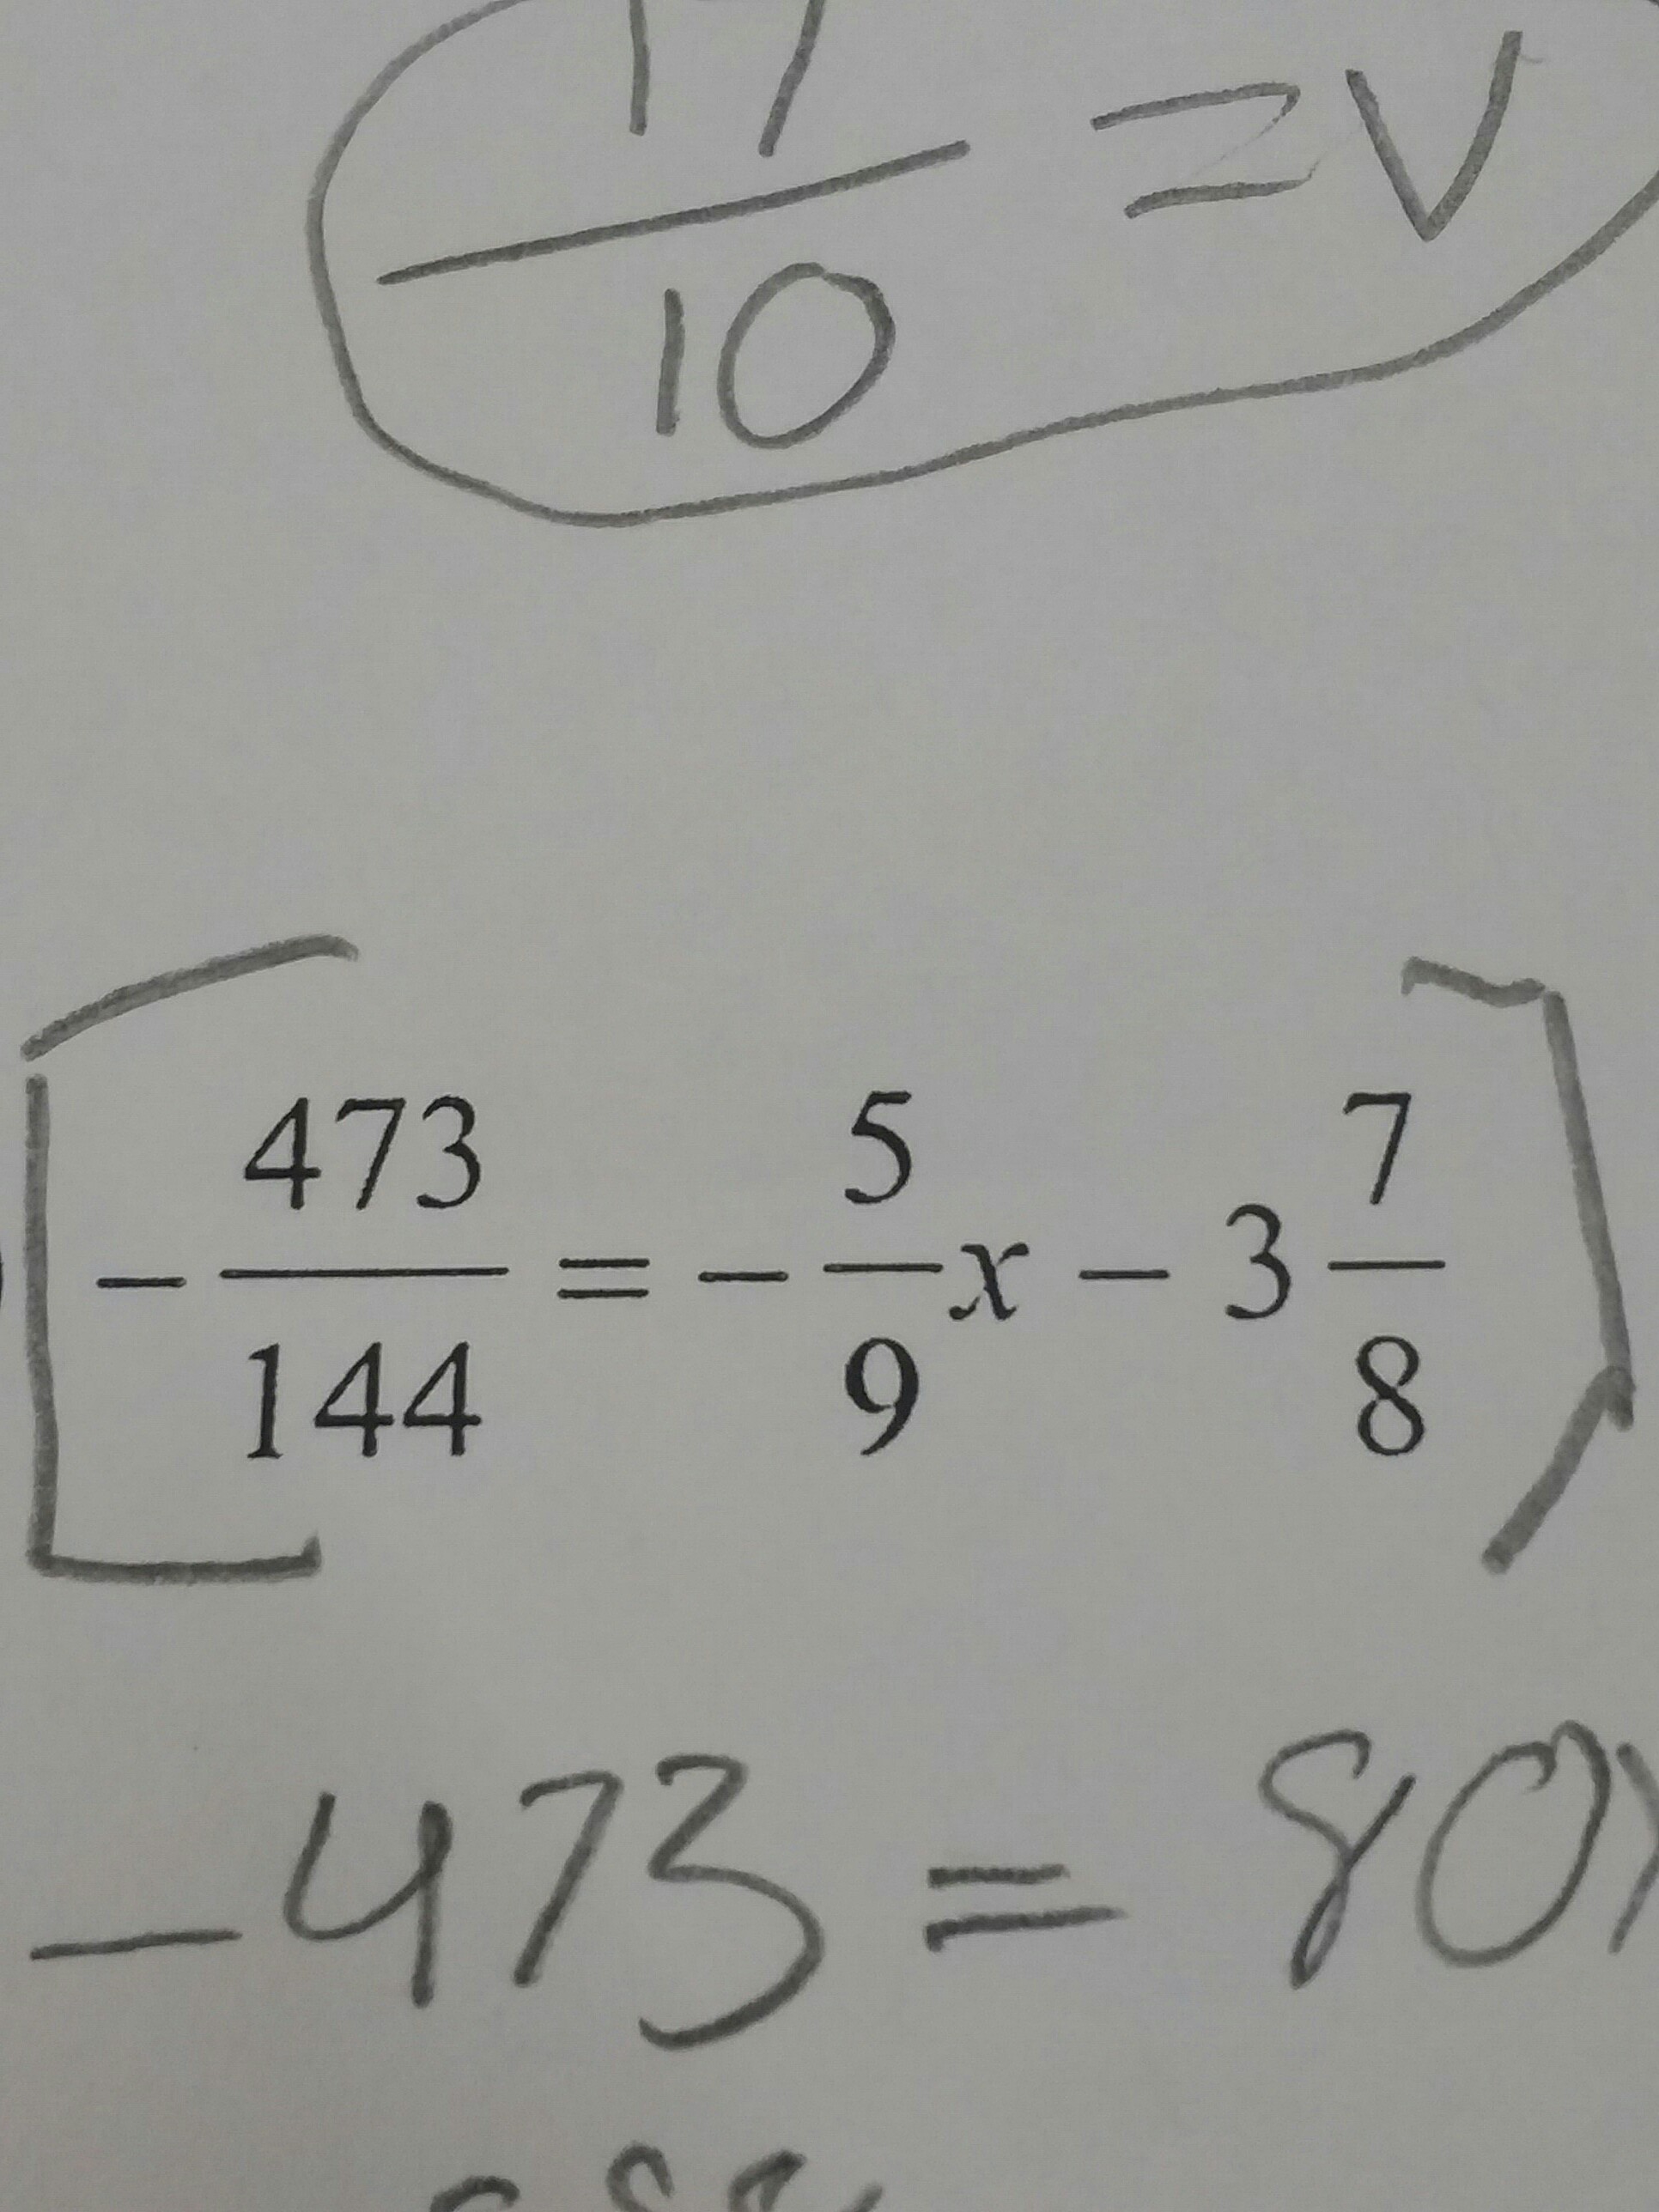 17/10 = V
-473/144 = -5/9x - 3 7/8
-473 = 80x